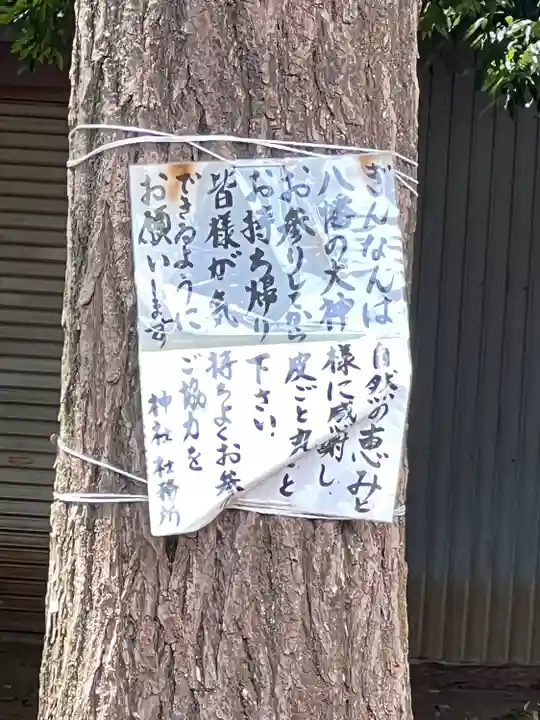 ぎんなんは自然の恵みと
八幡の大神様に感謝し
お参りしてから皮ごと丸ごと
お持ち帰り下さい
皆様が気持ちよくお参
できるようにご協力を
お願いします 神社 社務所